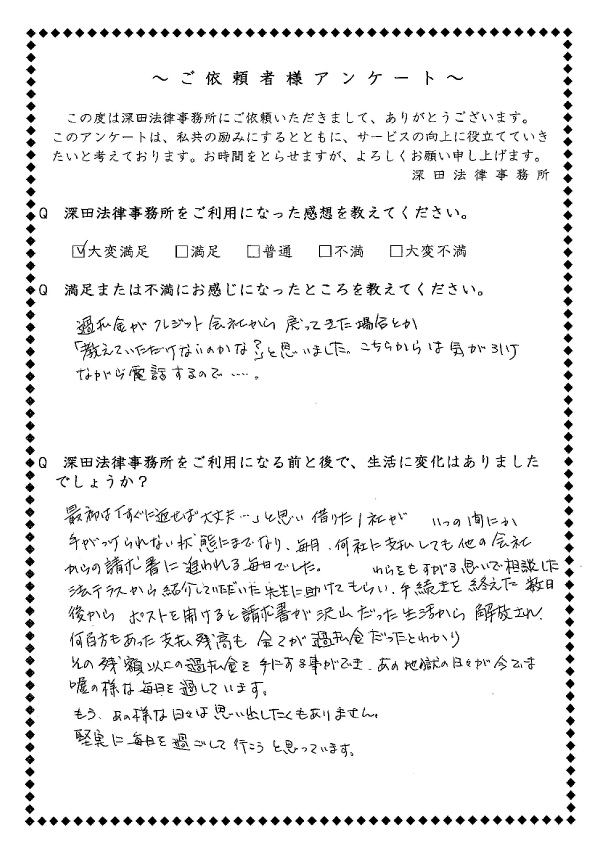 ～ご依頼者様アンケート～
この度は深田法律事務所にご依頼いただきまして、ありがとうございます。
このアンケートは、私共の励みにするとともに、サービスの向上に役立てていき
たいと考えております。お時間をとらせますが、よろしくお願い申し上げます。
深田法律事務所
Q 深田法律事務所をご利用になった感想を教えてください。
☑大変満足 □満足 □普通 □不満 □大変不満
Q 満足または不満にお感じになったところを教えてください。
過払金がクレジット会社から戻ってきた場合とか
「教えていただけないのかな?」と思いました。こちらからは気が引け
ながら電話するので‥‥。
Q 深田法律事務所をご利用になる前と後で、生活に変化はありました
でしょうか？
最初は「すぐに返せば大丈夫…」と思い借りた1社が いつの間にか
手がつけられない状態にまでなり、毎月、何社に支払しても他の会社
からの請求書に追われる毎日でした。 わらをもすがる思いで相談した
法テラスから紹介していただいた先生に助けてもらい、手続きを終えた数日
後から ポストを開けると請求書が沢山だった生活から 解放され、
何百万もあった支払残高も 全てが過払金だったとわかり
その残額以上の過払金を手にする事ができ、あの地獄の日々が今では
嘘の様な毎日を過しています。
もう、あの様な日々は思い出したくもありません。
堅実に毎日を過ごして行こうと思っています。